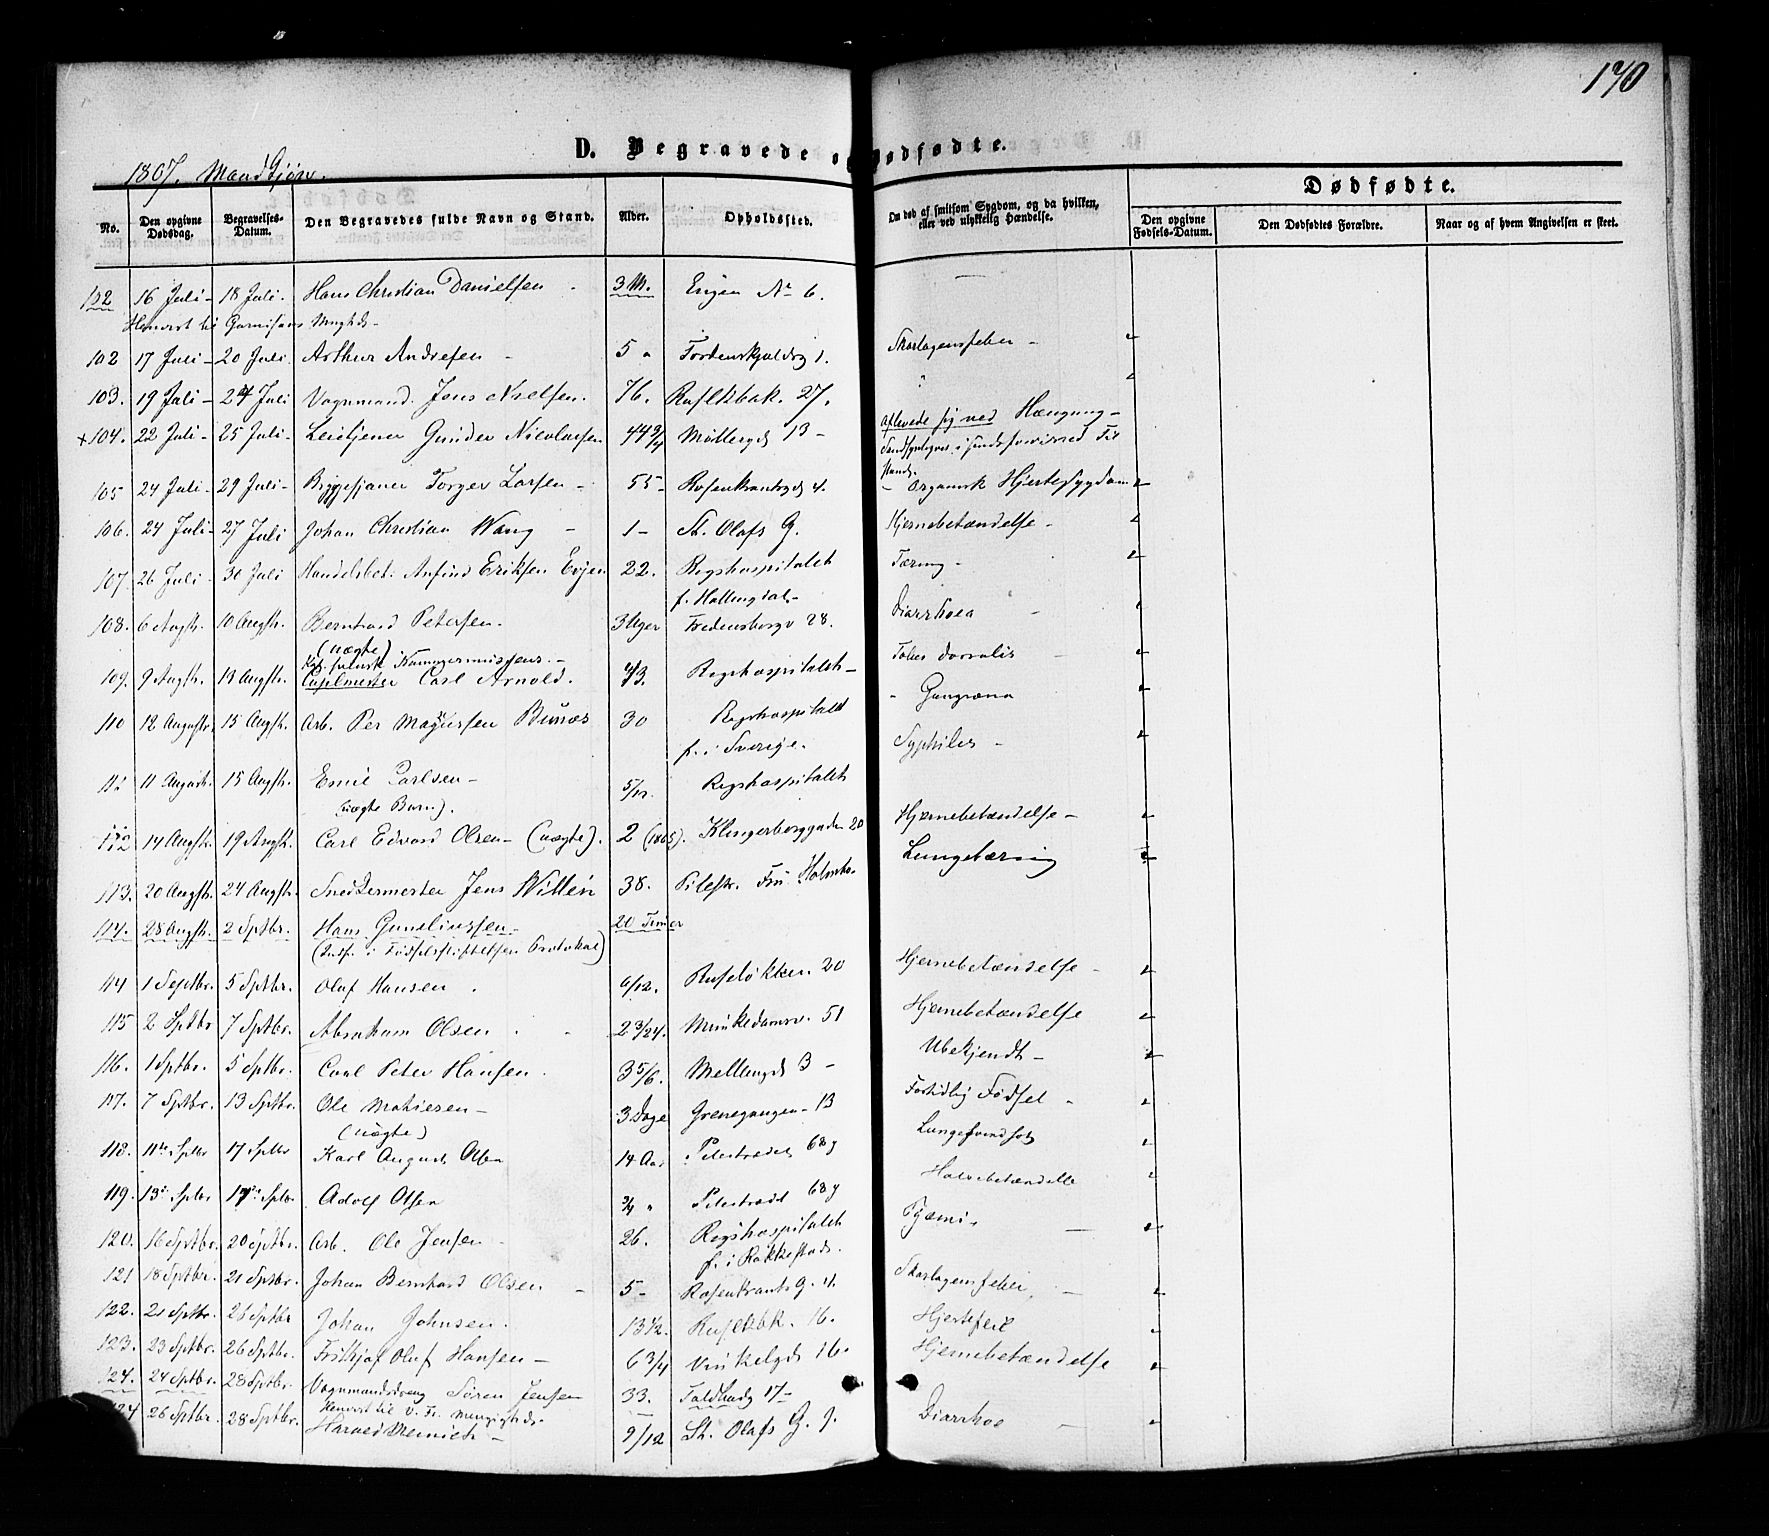 170
D. Begravede og Dødfødte.
1867. Mandkjøn.
No. | Den opgivne Dødsdag. | Begravelses-Datum. | Den Begravedes fulde Navn og Stand. | Alder. | Opholdssted. | Om død af smitsom Sygdom, og da hvilken, eller ved ulykkelig Hændelse. | Dødfødte.
Den opgivne Fødsels-Datum. | Den Dødfødtes Forældre. | Naar og af hvem Angivelsen er skeet.
102 16 Juli - 18 Juli. Hans Christian Danielsen - 3 M. Engen No 6. —
Henvist til Garnisons Mnghds -
102 17 Juli - 20 Juli Arthur Andresen - 5 " Tordenskjoldsg 1. Skarlagensfeber -
103. 19 Juli - 24 Juli Vognmand Jens Nielsen. 76. Rusløkbak. 27. "
+104. 22 Juli - 25 Juli - Leietjener Gunder Nicolaisen 44 3/4 Møllergd 13 - Aflivede sig ved Hængning - Sandsynligvis i sindsforvirred Tilstand.
105 24 Juli - 29 Juli - Byggesjauer Torger Larsen - 55 - Rosenkrantzgd 4. - Organisk Hjertesygdom
106. 24 Juli - 27 Juli Johan Christian Wang - 1 - St. Olafs G. Hjernebetændelse -
107. 26 Juli - 30 Juli Handelsbet. Anfind Eriksen Evjen 22. Rigshospitalet Tæring -
f. Hallingdal -
108. 6 Augstr. 10 Augstr. Bernhard Petersen. 3 Uger Fredensborgv 28. Diarrhoea -
(uægte)
109. 9 Augstr. 13 Augstr. Kgl. svensk Kammermusicus - Capelmester Carl Arnold. 73. Rigshospitalet - Tabes dorsalis -
110 12 Augustr. 15 Augstr. Arb. Per Magnussen Bunæs 30 Rigshospitalet - Gangræna
f. i Sverige.
112 11 Augustr. 15 Augstr. Emil Carlsen - 5/12. Rigshospitalet Syphilis -
(uægte Barn).
112 14 Augstr. 19 Augstr. Carl Edvard Olsen - (uægte). 2 (1865). Klingenberggaden 20 Hjernebetændelse -
113. 20 Augstr. 24 Augstr. Snedkermester Jens Willein 38. Pilestr. Fru Holmbo. Lungetæring
114. 28 Augstr. 2 Sptbr. Hans Guneliussen - 20 Timer
(Indf. i Fødselsstiftelsen Protokol)
114 1 Septbr. 5 Sptbr. Oluf Hansen . 6/12. Rusløkken 20 Hjernebetændelse -
115 2 Sptbr 7 Sptbr. Abraham Olsen . 2 3/24. Munkedamsv. 51 Hjernebetændelse
116. 1 Sptbr. 5 Sptbr. Carl Peter Hansen . 3 5/6. Mellemgd 3 - Ubekjendt -
117. 7 Sptbr. 13 Sptbr. Ole Mathiesen - 3 Dage Grænsegangen - 13 Fortidlig Fødsel -
(uægte)
118. 11te Sptbr 17 Sptbr Karl August Olsen 14 Aar Pilestrædet 68 y Lungesvindsot
119. 13de Sptbr 17de Sptbr Adolf Olsen 3/4 " Pilestrædet 68 y Halsbetændelse
120. 16 Sptbr. 20 Sptbr. Arb. Ole Jensen - 26. Rigshospitalet Pyæmi. —
f. i Rakkestads.
121 18 Sptbr. 21 Sptbr. Johan Bernhard Olsen - 5 - Rosenkrants G. 11. Skarlagensfeber. -
122. 21 Sptbr. 26 Sptbr Johan Johnsen. 13 1/2. Rusløkbk. 16. Hjertefeil
123. 23 Sptbr. 26 Sptbr. Fritkjof Oluf Hansen - 6 3/4 Vinkelgd 16. Hjernebetændelse
124. 24 Sptbr. 28 Sptbr. Vognmandsdreng Søren Jensen 33. Toldbodg 17 -
Henvist til V. Fr. Menigheds.
124 26 Sptbr. 28 Sptbr. Harald Meinich - 9/12 St. Olafs G. 9. Diarrhoe —